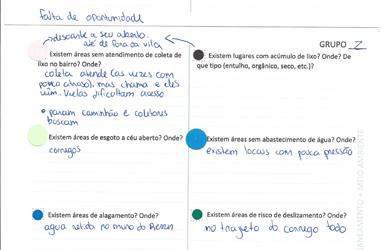 falta de oportunidade
descarte a seu aberto.
até de fora da vila
GRUPO 2
Existem áreas sem atendimento de coleta de
lixo no bairro? Onde?
coleta atende (as vezes com
pouco atraso), mas chama e eles
vim. Vielas dificultam acesso
param caminhão e coletores
buscam
Existem lugares com acúmulo de lixo? Onde? De
que tipo (entulho, orgânico, seco, etc.)?
Existem áreas de esgoto a céu aberto? Onde?
corregos
Existem áreas sem abastecimento de água? Onde?
existem locais com pouca pressão
Existem áreas de alagamento? Onde?
agua retida no muro do
Existem áreas de risco de deslizamento? Onde?
no trajeto do corrego todo
SANEAMENTO + MEIO AMBIENTE